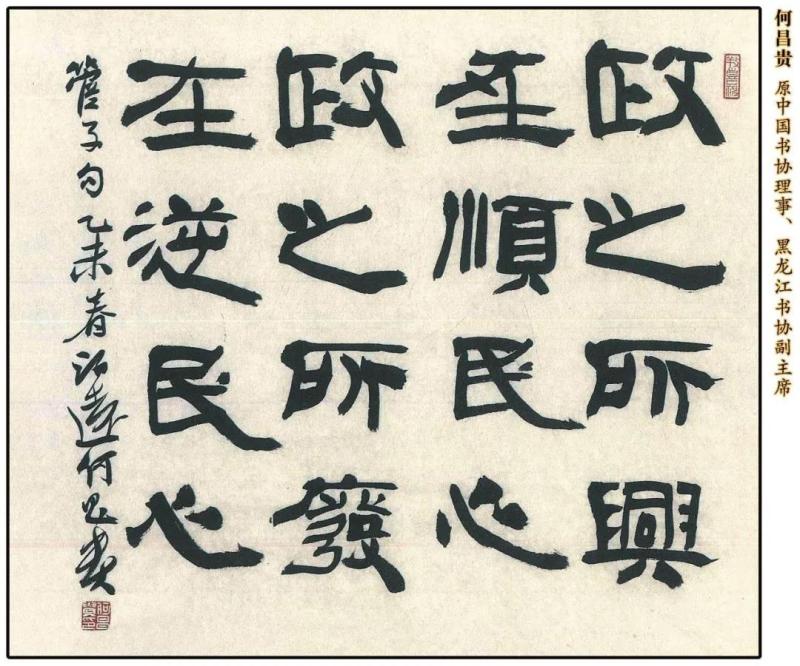 何昌贵 原中国书协理事、黑龙江书协副主席
政之所興
在順民心
政之所發
在逆民心
管子句乙未春 何昌貴